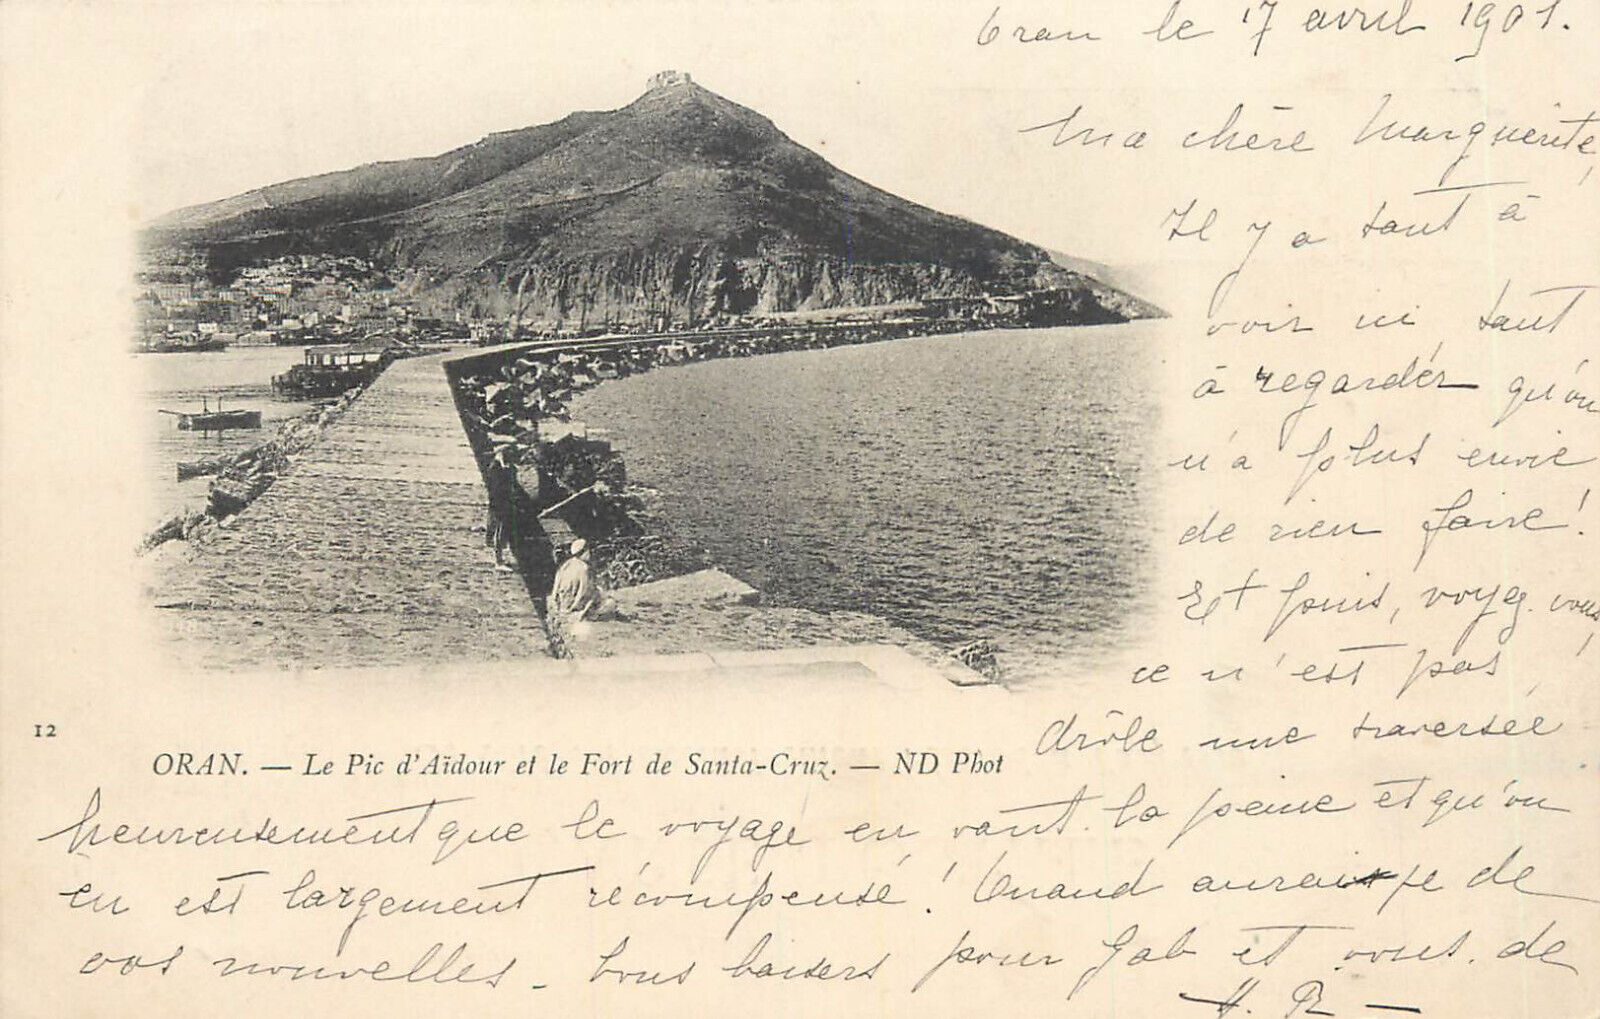 Oran le 17 avril 1901.
Ma chère Marguerite,
Il y a tant à
voir ici tant
à regarder qu'on
n'a plus envie
de rien faire!
Et puis, voyez vous
ce n'est pas
drôle une traversée
12
ORAN. — Le Pic d'Aïdour et le Fort de Santa-Cruz. — ND Phot
heureusement que le voyage en vaut la peine et qu'on
en est largement récompensé! Quand aurai je de
vos nouvelles - bons baisers pour Gab et vous. de
H. R —